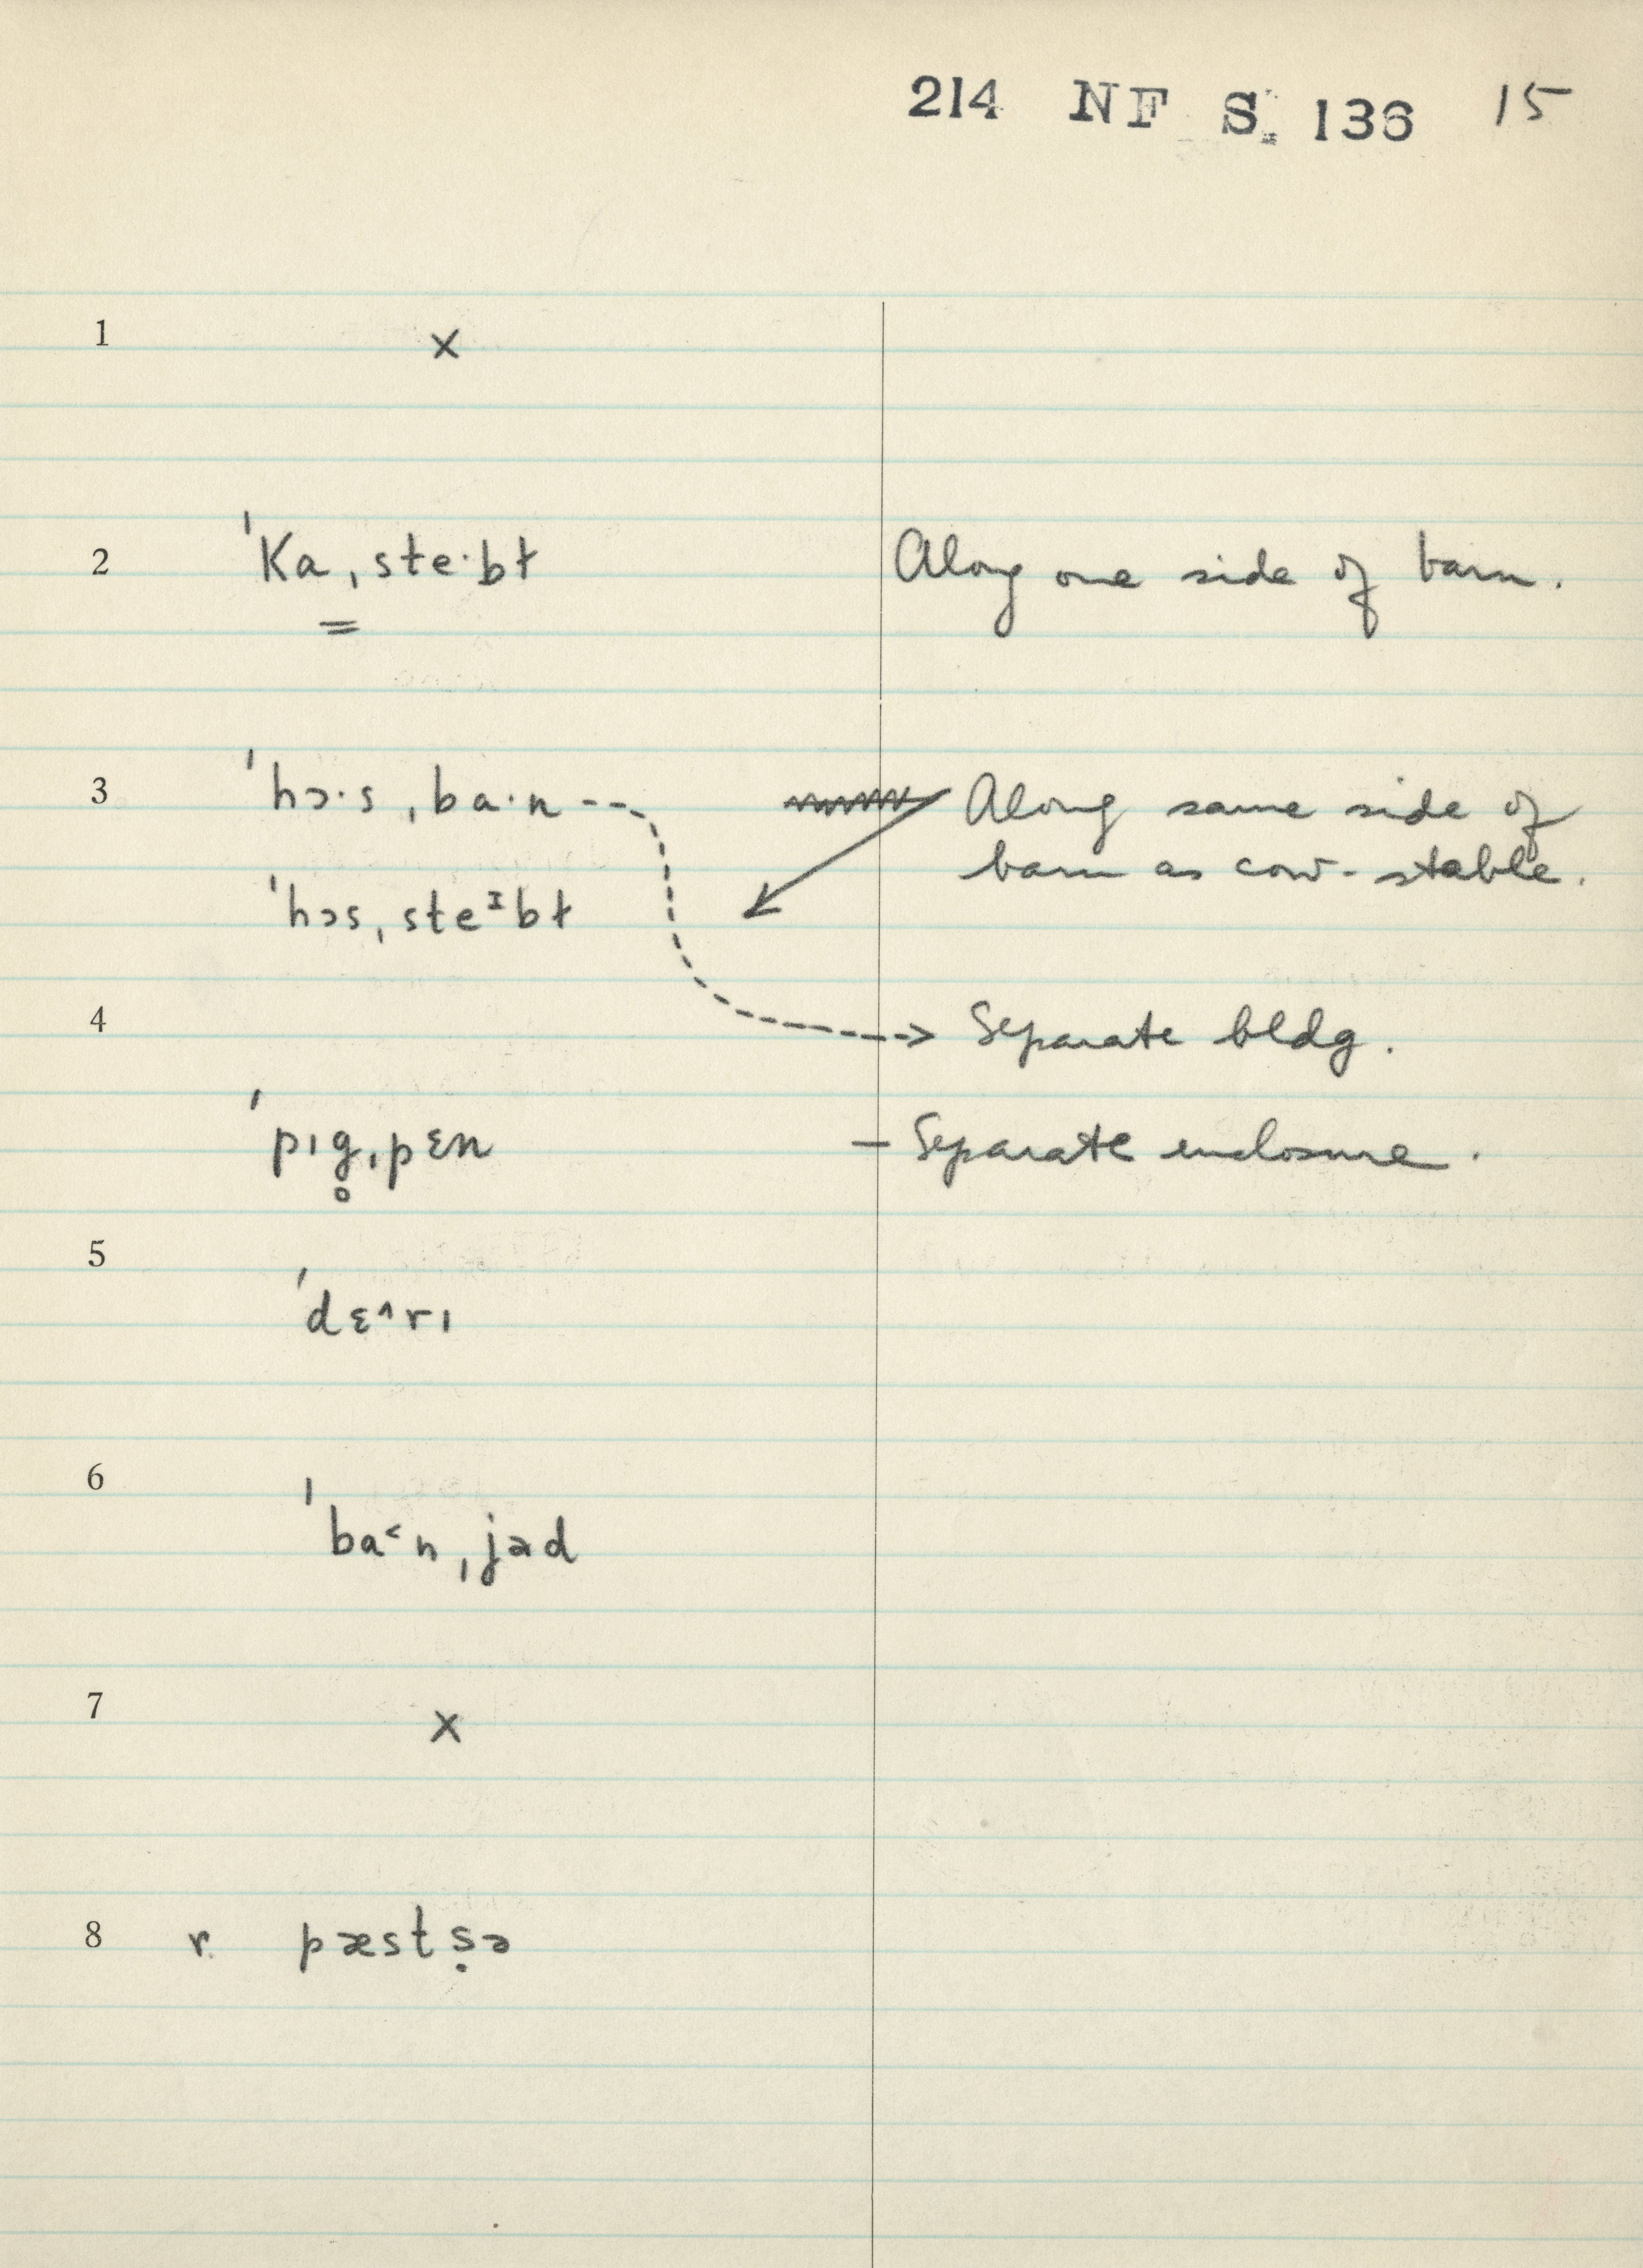 214 NF S. 136 15
1 ×
2 ˈKaˌste·bɫ Along one side of barn.
3 ˈhɔ·sˌba·n Along same side of
barn as cow-stable.
ˈhɔsˌsteᶦbɫ
4 Separate bldg.
ˈpɪg̥ˌpɛn – Separate enclosure.
5
ˈdɛ^rɪ
6
ˈba˂nˌjəd
7 ×
8 r. pæstṣə